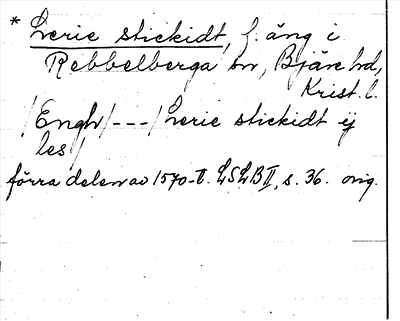 * Lerie stickidt, f. äng i
Rebbelberga sn, Bjäre hd,
Krist. l.
/Engh/---/Lerie stickidt ij
les/
förra delen av 1570-t. LSLB II, s. 36. orig.